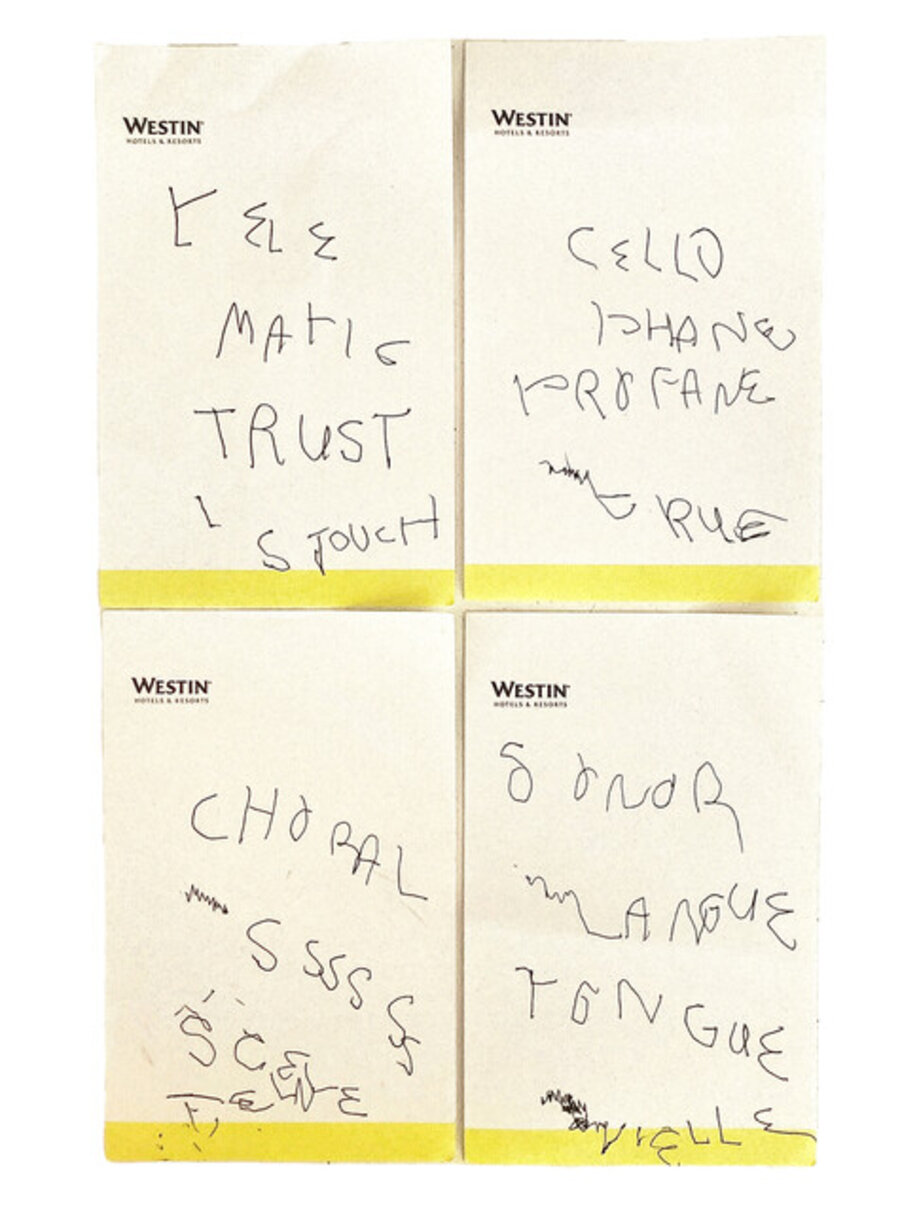 WESTIN
HOTELS & RESORTS
TELE
MATIC
TRUST
I
S TOUCH
WESTIN
HOTELS & RESORTS
CELLO
PHANE
PROFANE
T RUE
WESTIN
HOTELS & RESORTS
CHORAL
S SSS S S
SCENE
WESTIN
HOTELS & RESORTS
SONOR
LANGUE
TONGUE
VIELLE